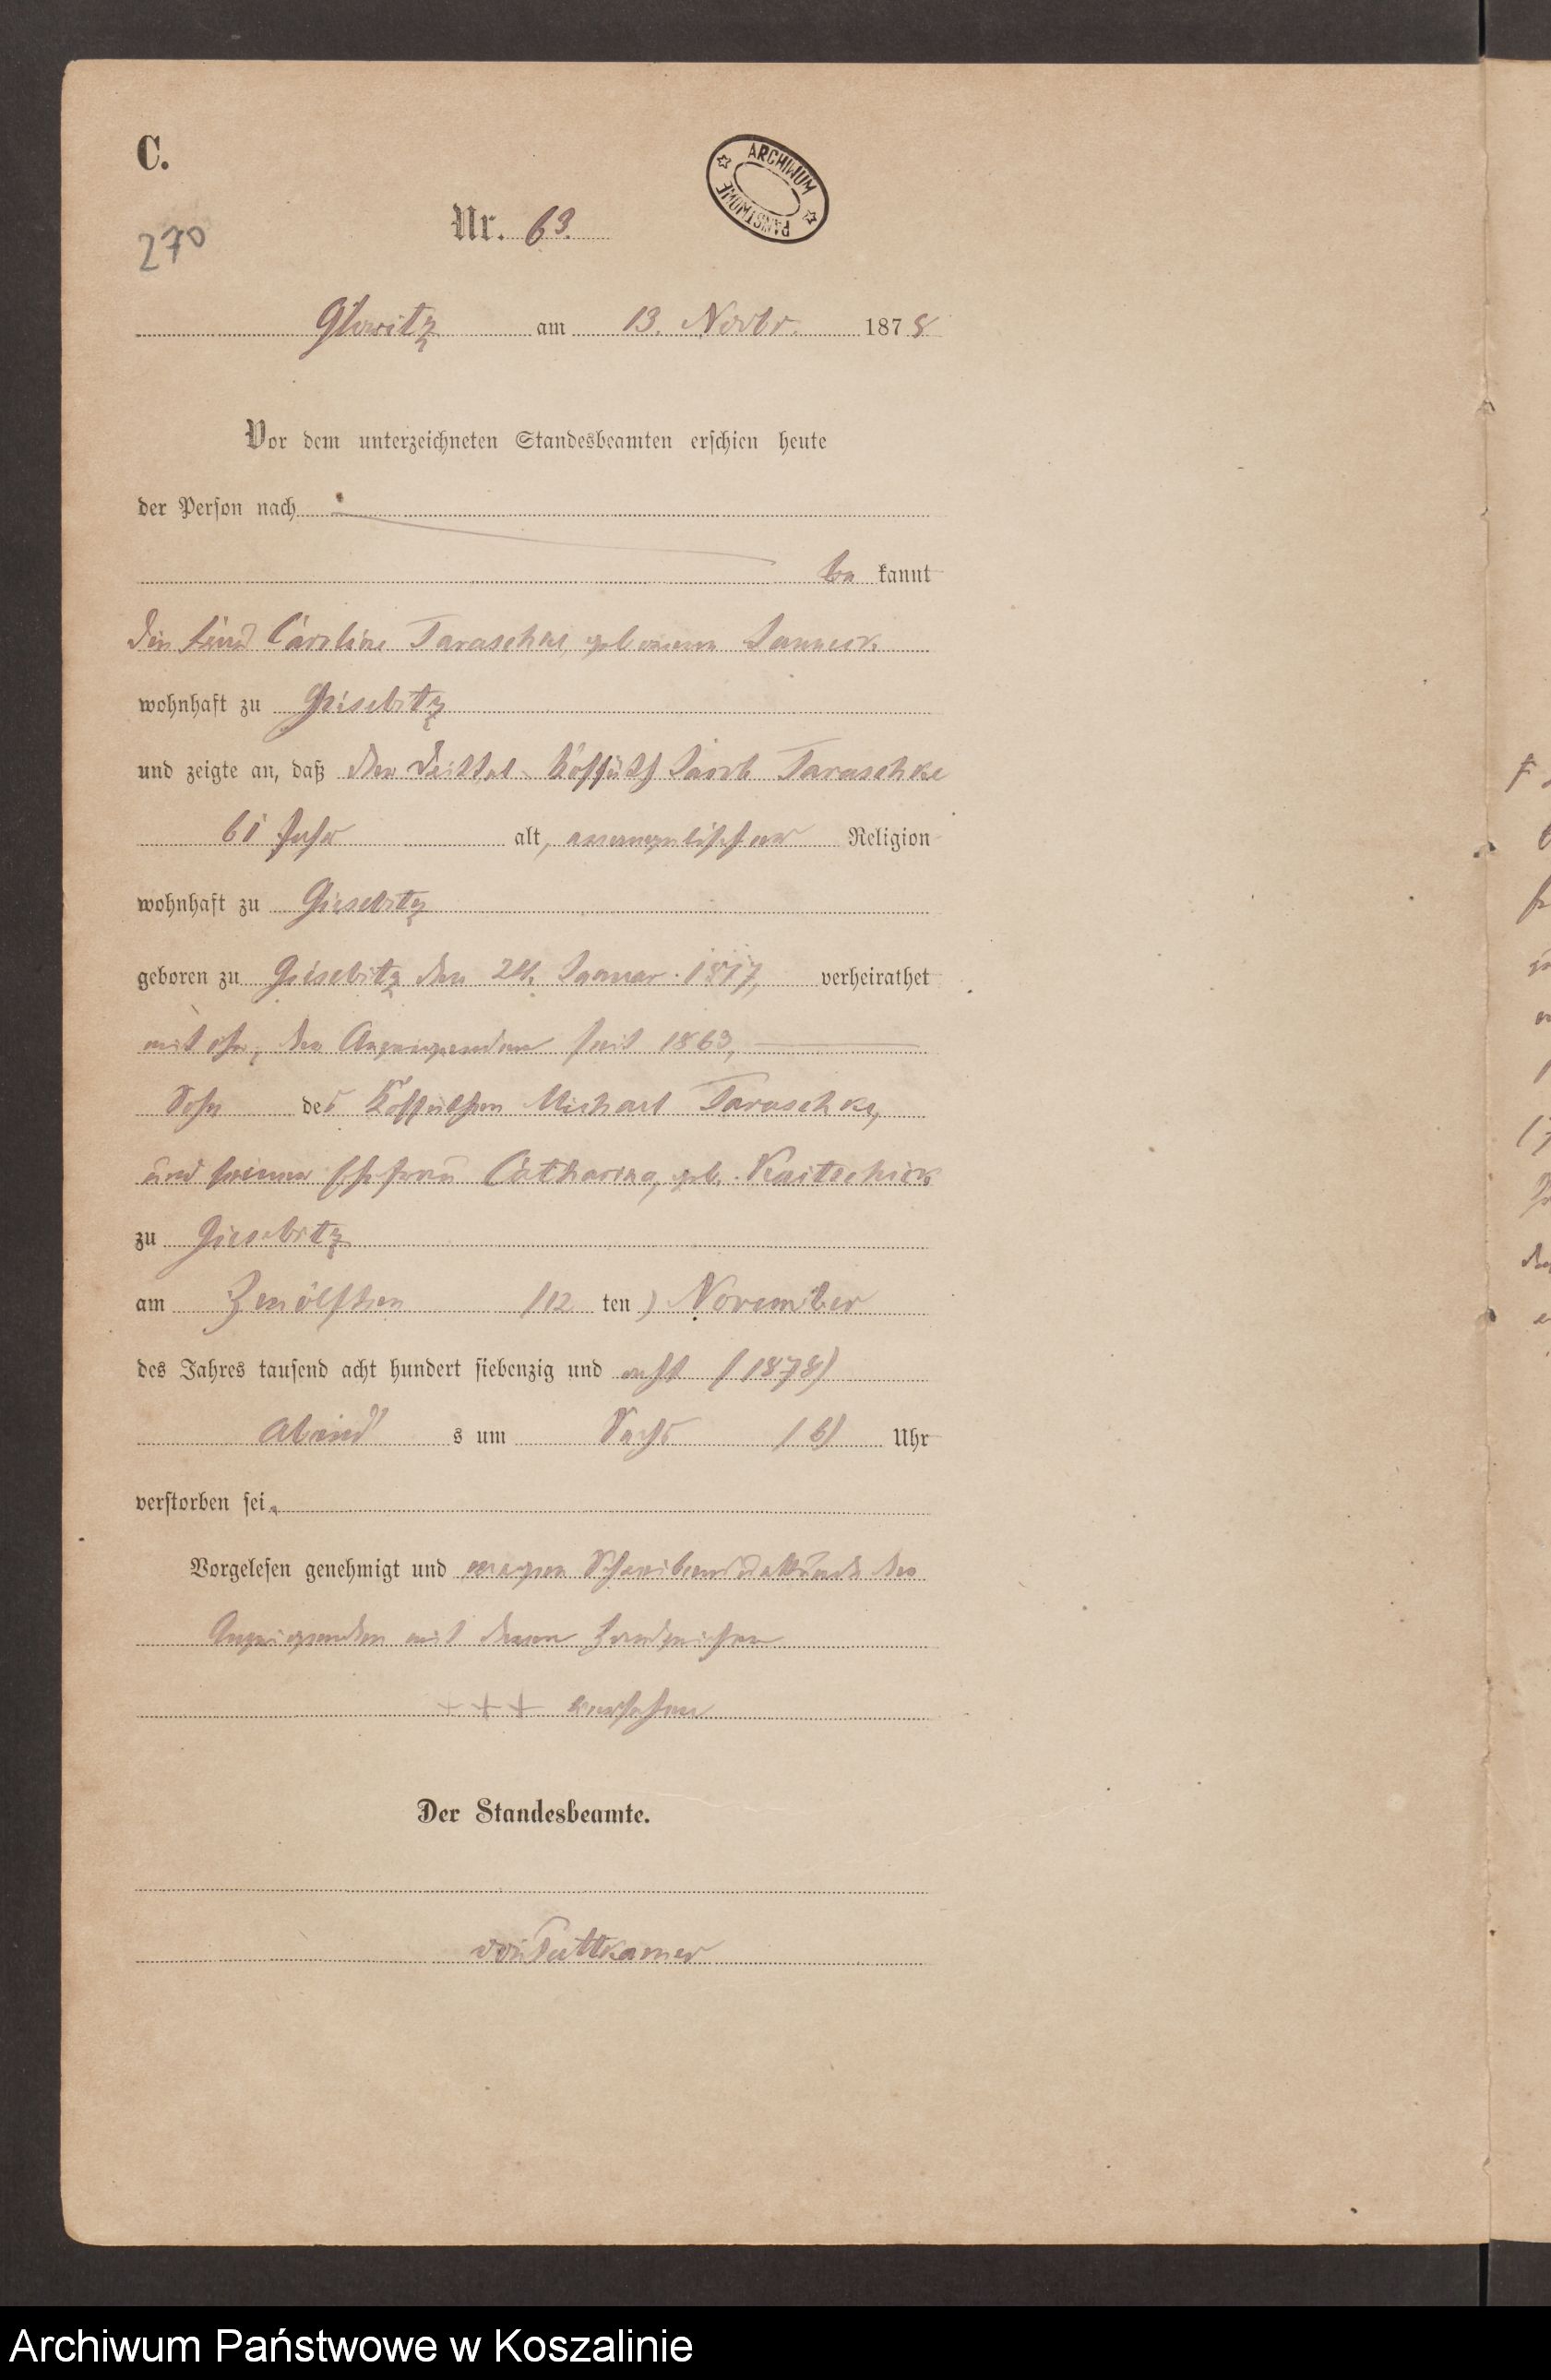 C.
ARCHIWUM PAŃSTWOWE
270
Nr. 63.
Glowitz am 13. Novbr. 1878
Vor dem unterzeichneten Standesbeamten erschien heute
der Person nach
be kannt
die Caroline Taraschke, geborene Janneck
wohnhaft zu Giesebitz
und zeigte an, daß der Kossäth Jacob Taraschke
61 Jahr alt, evangelischer Religion
wohnhaft zu Giesebitz
geboren zu Giesebitz den 24. Januar 1817, verheirathet
mit ihr, der Anzeigenden seit 1863,
Sohn des Kossäthen Michael Taraschke,
und seiner Ehefrau Catharina, geb. Kaitschick
zu Giesebitz
am Zwölften (12 ten) November
des Jahres tausend acht hundert siebenzig und acht (1878)
Abend s um Sechs (6) Uhr
verstorben sei.
Vorgelesen genehmigt und wegen Schreibens der
Anzeigenden mit deren Handzeichen
+++ versehen
Der Standesbeamte.
von Puttkamer
Archiwum Państwowe w Koszalinie